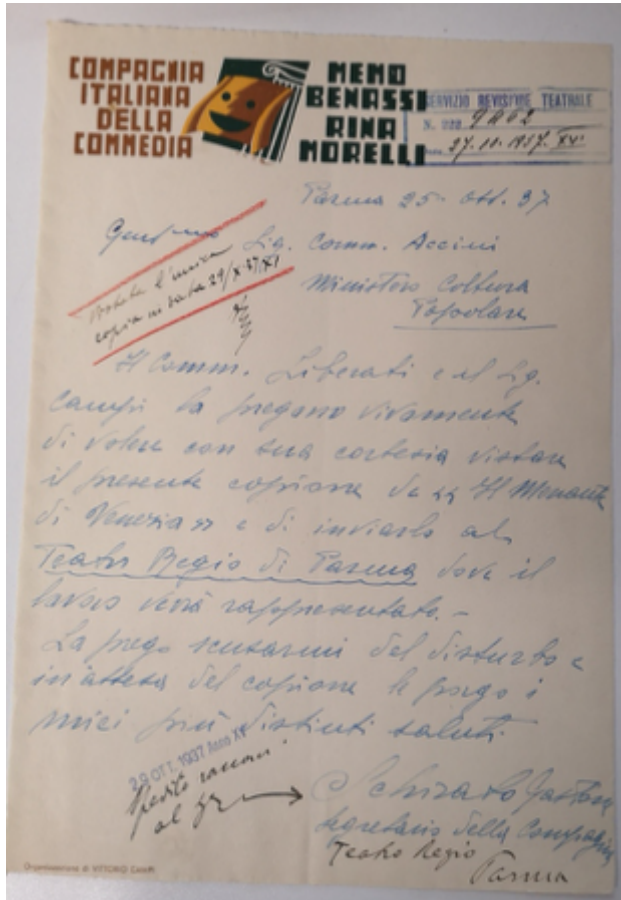 COMPAGNIA
ITALIANA
DELLA
COMMEDIA
MEMO
BENASSI
RINA
MORELLI
SERVIZIO REVISIONE TEATRALE
N.
27.10.1937. XV
Parma 25. Ott. 37
Sig. Comm. Accini
Ministero Cultura
Popolare
l'unica
copia in data 29/X-37
Il Comm. Liberati e il Sig.
Campi la pregano vivamente
di volere con sua cortesia vistare
il presente copione de "Il Mercante
di Venezia" e di inviarlo al
Teatro Regio di Parma dove il
lavoro verrà rappresentato.-
La prego scusarmi del disturbo e
in attesa del copione le porgo i
miei più distinti saluti.
29 OTT. 1937 Anno XV
Spedito
al
Segretario della Compagnia
Teatro Regio
Parma
Organizzazione di VITTORIO